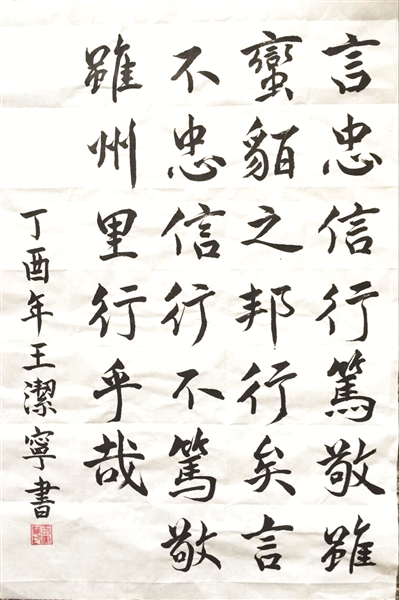 言忠信行篤敬雖
蠻貊之邦行矣言
不忠信行不篤敬
雖州里行乎哉
丁酉年王潔寧書